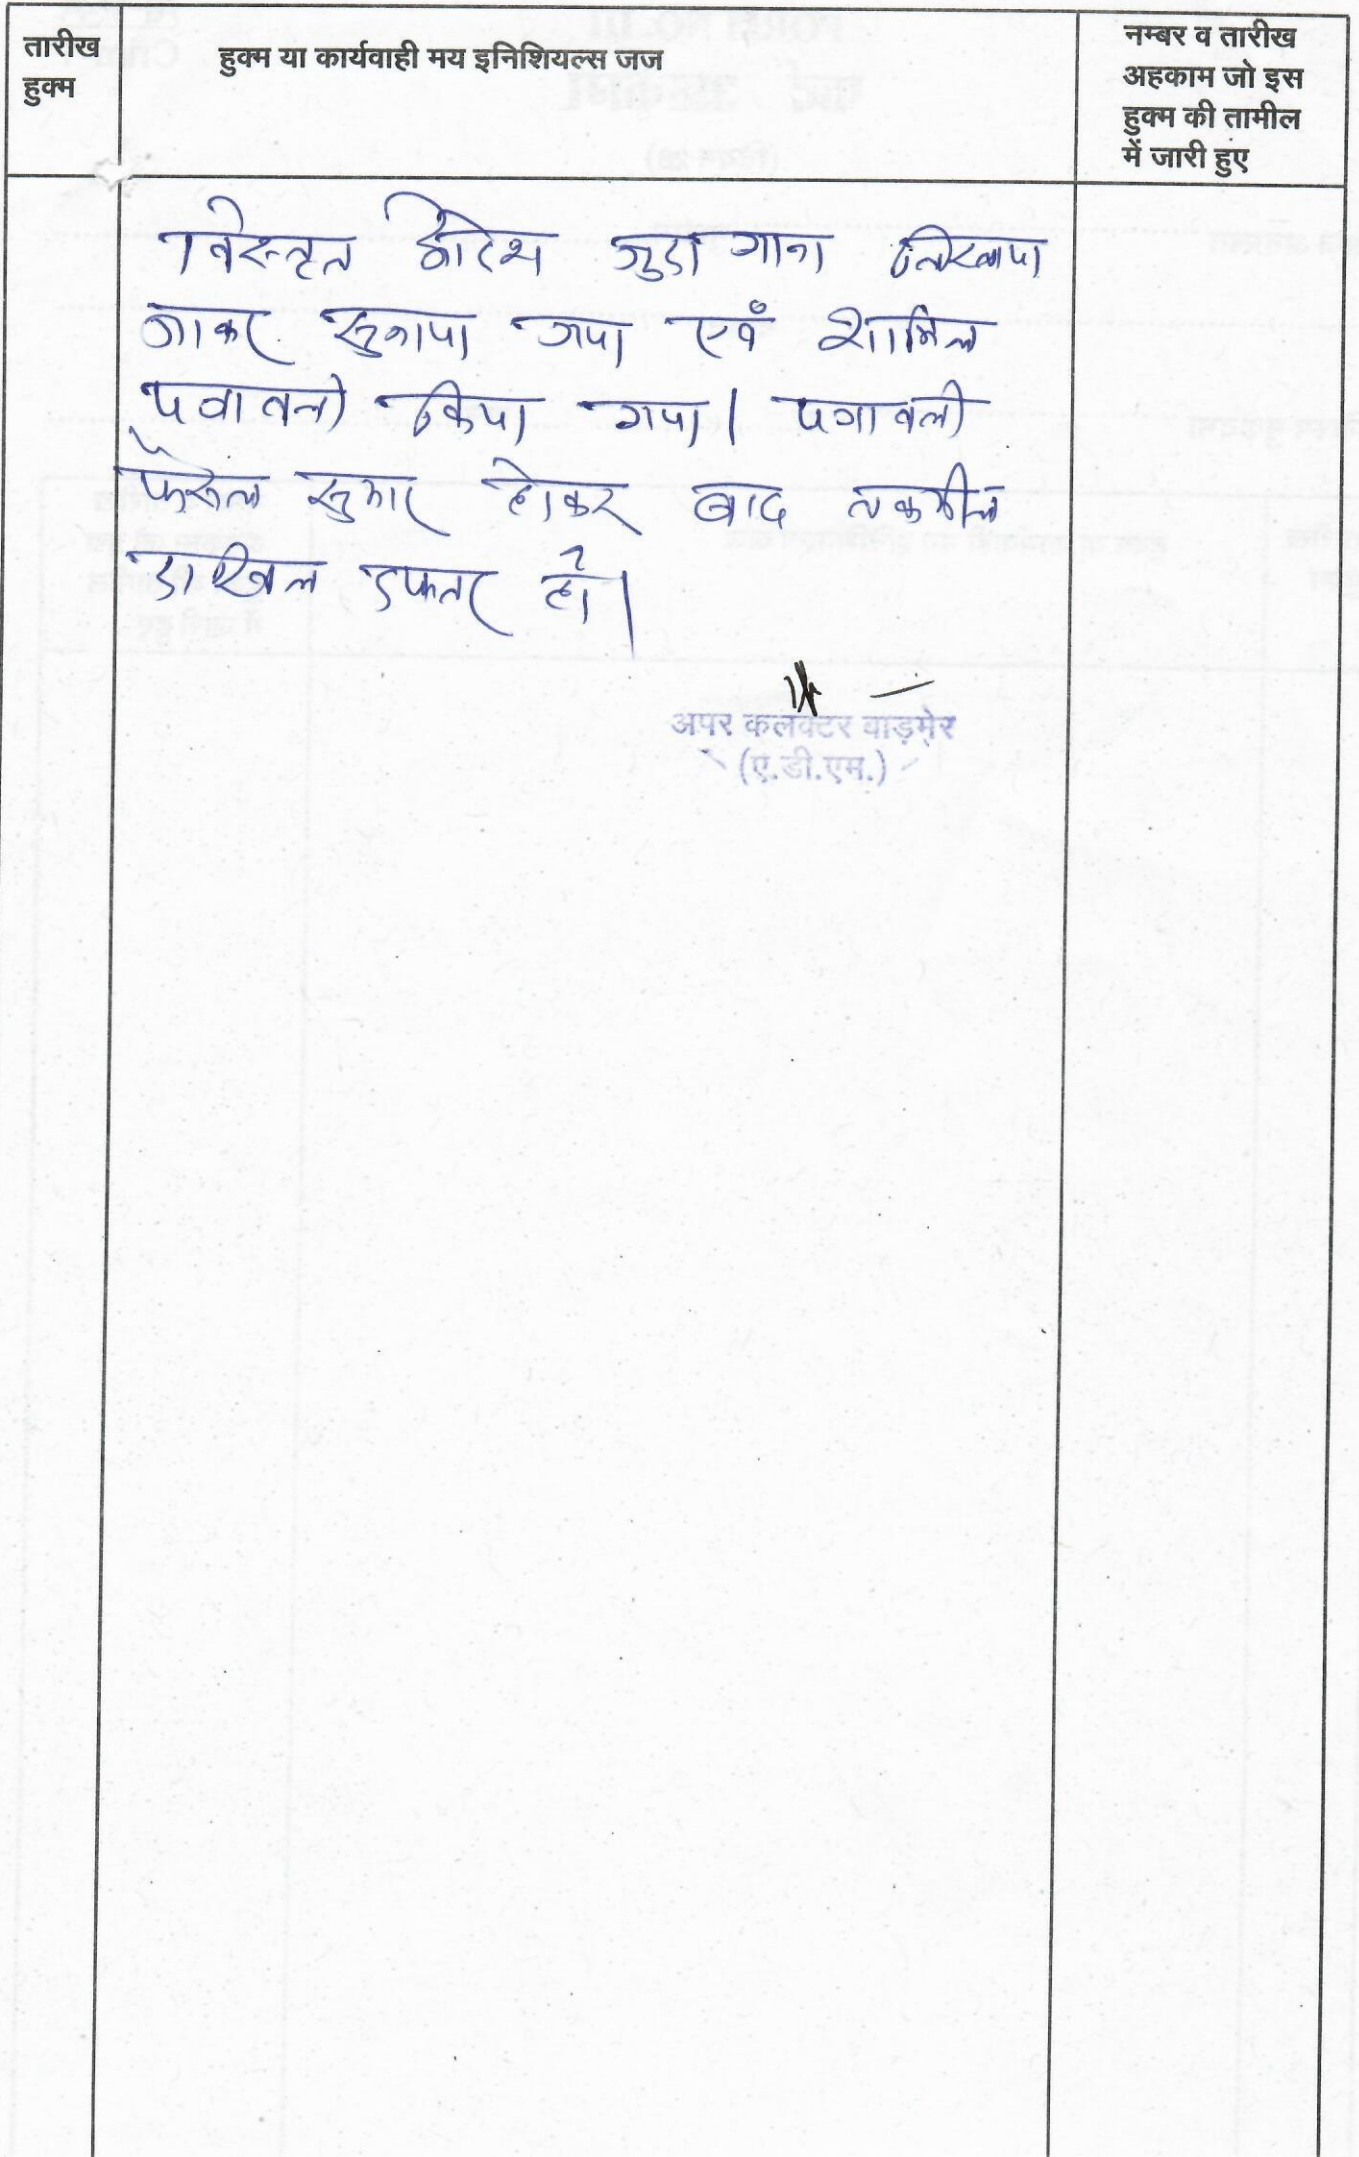 तारीख
हुक्म
हुक्म या कार्यवाही मय इनिशियल्स जज
नम्बर व तारीख
अहकाम जो इस
हुक्म की तामील
में जारी हुए
विस्तृत आदेश जुदागाना लिखाया
जाकर सुनाया गया एवं शामिल
पत्रावली किया गया। पत्रावली
फैसल सुमार होकर बाद तकमील
दाखिल दफ्तर हो।
अपर कलक्टर बाड़मेर
(ए.डी.एम.)